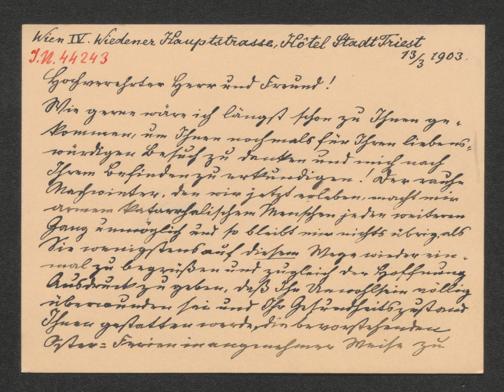 Wien IV. Wiedener Hauptstrasse, Hôtel Stadt Triest
J.N. 44243
13/3 1903.
Hochverehrter Herr und Freund!
Wie gerne wäre ich längst schon zu Ihnen ge-
kommen, um Ihnen nochmals für Ihren liebens-
würdigen Besuch zu danken und mich nach
Ihrem Befinden zu erkundigen! Der rauhe
Nachwinter, den wir jetzt erleben, macht mir
armem katarrhalischen Menschen jeden weiteren
Gang unmöglich und so bleibt mir nichts übrig, als
Sie wenigstens auf diesem Wege wieder ein-
mal zu begrüßen und zugleich der Hoffnung
Ausdruck zu geben, daß Ihr Unwohlsein völlig
überwunden sei und Ihr Gesundheitszustand
Ihnen gestatten werde, die bevorstehenden
Oster-Ferien in angenehmer Weise zu